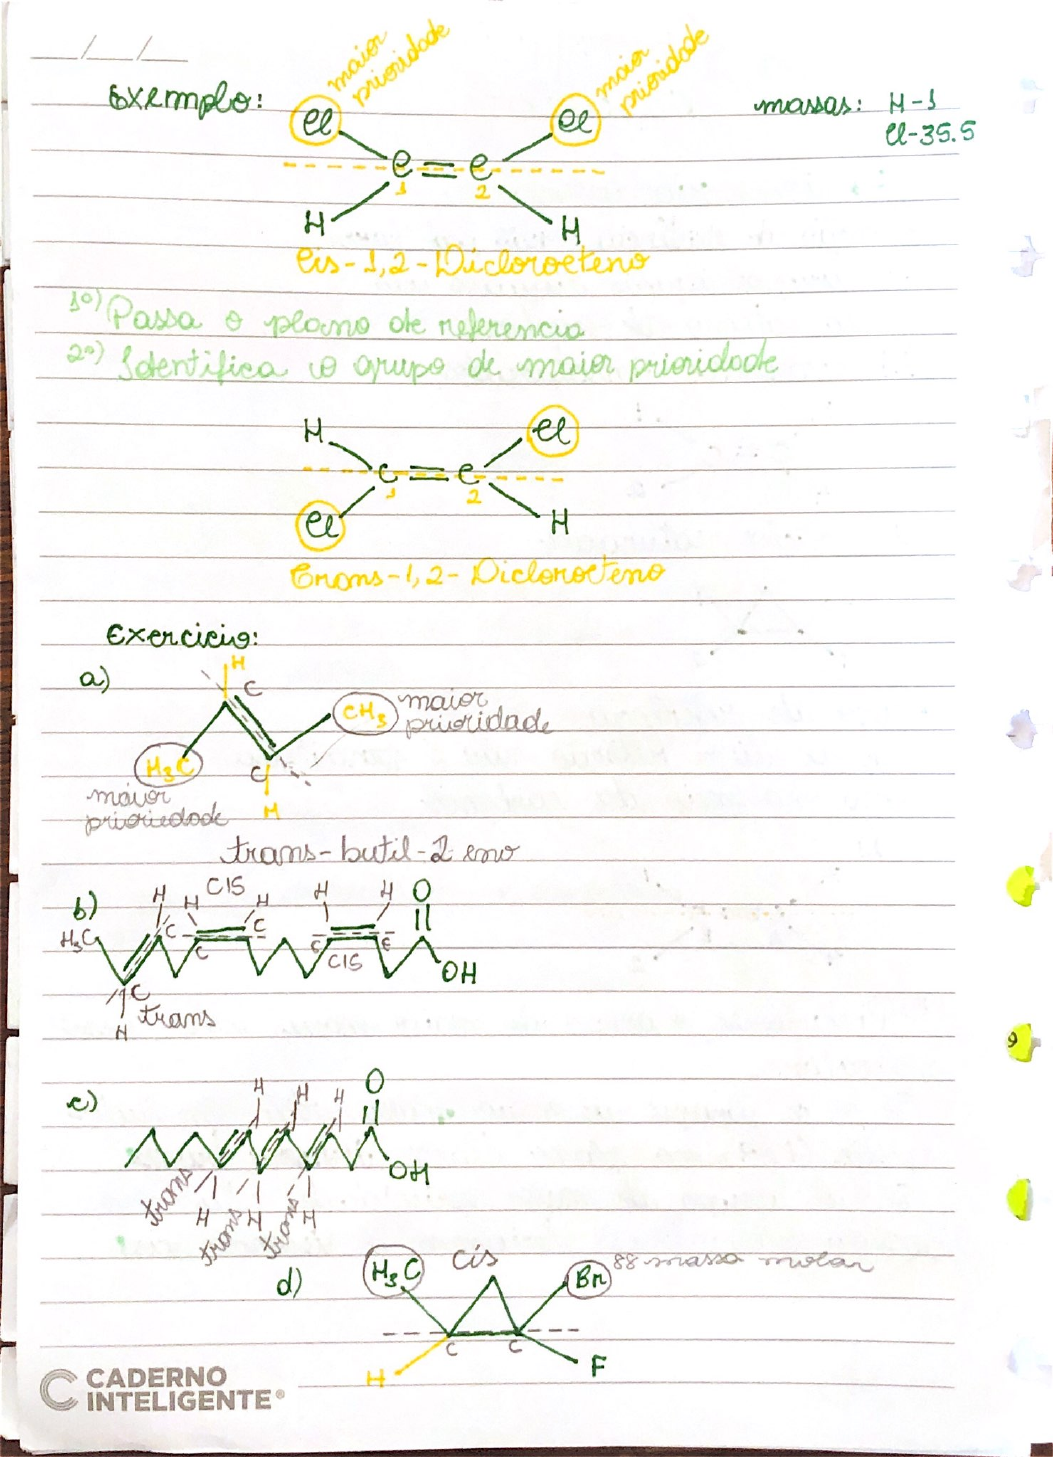 __/__/__
Exemplo:
maior prioridade
maior prioridade
massas: H-1
Cl-35.5
Cl Cl
C = C
1 2
H H
Cis-1,2-Dicloroeteno
1º) Passa o plano de referencia
2º) Identifica o grupo de maior prioridade
H Cl
C = C
1 2
Cl H
Trans-1,2-Dicloroeteno
Exercicio:
a)
H
C
CH3 maior prioridade
H3C C
maior prioriedade
H
trans-butil-2 eno
b)
H CIS H H H H O
H3C C C C C C
C CIS OH
H trans
c)
H H H O
OH
trans H trans H trans H
d)
H3C Cis Br 88 massa molar
C C
H F
CADERNO
INTELIGENTE®